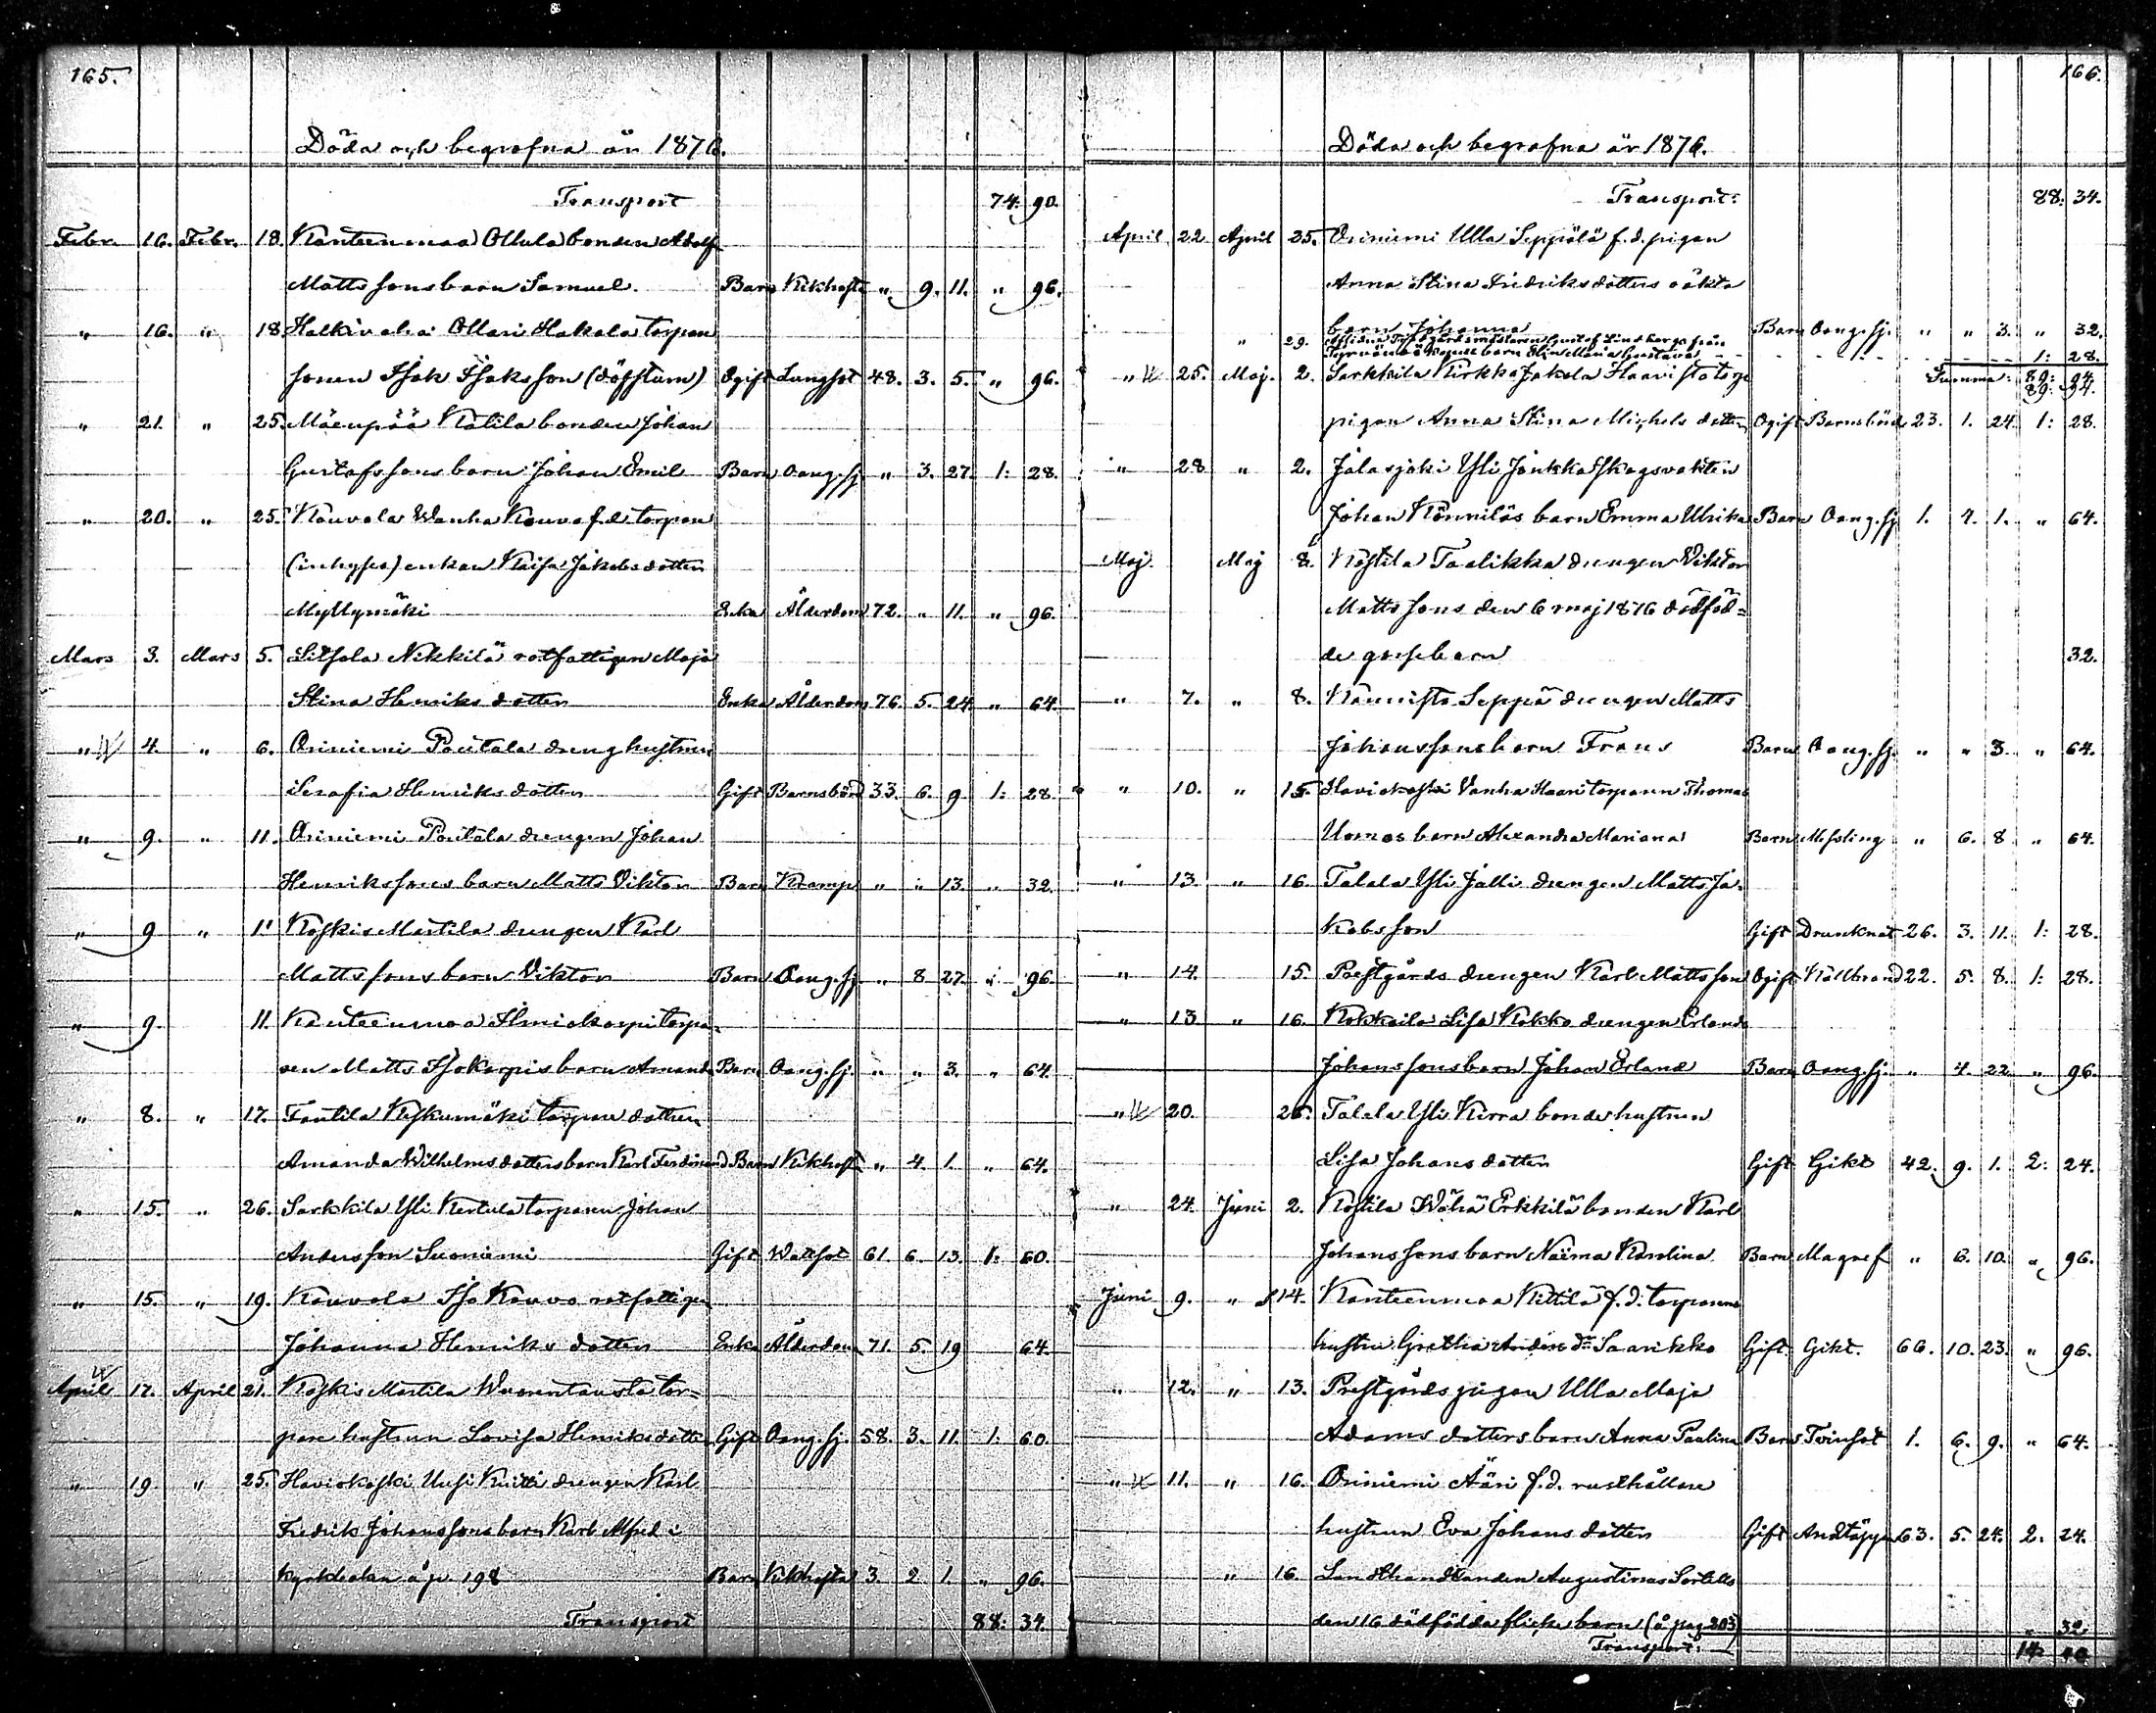 165.
Döda och begrafna år 1876.
Transport 74. 90.
Febr. 16. Febr. 18. Kanteenmaa Ollula bonden Adolf
Mattssons barn Samuel. Barn Kikhosta " 9. 11. " 96.
" 16. " 18. Halkivaha Ollari Hakala torpare
sonen Isak Isaksson (döfstum) Ogift Lungsot 48. 3. 5. " 96.
" 21. " 25. Mäenpää Katila bonden Johan
Gustafssons barn Johan Emil Barn Oang. sj. " 3. 27. 1: 28.
" 20. " 25. Kouvola Wanha Kouvo f.d. torpare
(inhyses) enkan Kaisa Jakobsdotter
Myllymäki Enka Ålderdom 72. " 11. " 96.
Mars 3. Mars 5. Liisola Nikkilä rotfattigen Maja
Stina Henriksdotter Enka Ålderdom 76. 5. 24. " 64.
" 4. " 6. Oriniemi Poutala dreng hustrun
Serafia Henriksdotter Gift Barnsbörd 33. 6. 9. 1: 28.
" 9. " 11. Oriniemi Poutala drengen Johan
Henrikssons barn Matts Viktor Barn Kramp " " 13. " 32.
" 9 " 11 Koskis Martila drengen Karl
Mattssons barn Viktor Barn Oang. sj. " 8 27. " 96.
" 9. 11. Kanteenmaa torpa-
ren Matts Isokorpis barn Amanda Barn Oang. sj. " " 3. " 64.
" 8. " 17. Tantila Keskumäki torpare dottern
Amanda Wilhelmsdotters barn Karl Ferdinand Barn Kikhosta " 4. 1. " 64.
" 15. " 26. Sarkkila Yli Kertula torparen Johan
Andersson Suoniemi Gift Wattsot 61. 6. 13. 1: 60.
" 15. " 19. Kouvola Iso Kouvo rotfattigen
Johanna Henriksdotter Enka Ålderdom 71. 5. 19 64.
April 17. April 21. Koskis Martila Wuorentausta tor=
pare hustrun Lovisa Henriksdotter Gift Oang. sj. 58. 3. 11. 1: 60.
" 19. " 25. Haviokoski Uusi Knitti drengen Karl
Fredrik Johanssons barn Karl Alfred i
kyrkboken å p. 198 Barn Kikhosta 3. 2 1. " 96.
Transport 88: 34.
166.
Döda och begrafna år 1876.
Transport: 88: 34.
April 22 April 25. Oriniemi Ulla Seppälä f.d. pigan
Anna Stina Fredriksdotters oäkta
barn Johanna Barn Oang. sj. " " 3. " 32.
" 29. Gustaf Lindbergs från
barn Elin Maria Gustava 1: 28.
Summa: 89: 94.
89: 94.
" 25. Maj. 2. Sarkkila Kirkkojakola Haavisto torp
pigan Anna Stina Michelsdotter Ogift Barnsbörd 23. 1. 24. 1: 28.
" 28 " 2. Jalasjoki Yli Jonkka skogsvakten
Johan Könniläs barn Emma Ulrika Barn Oang. sj. 1. 7. 1. " 64.
Maj. Maj 8. Kostila Taalikka drengen Viktor
Mattssons den 6 maj 1876 dödföd=
de gossebarn 32.
" 7. " 8. Kännistö Seppä drengen Matts
Johanssons barn Frans Barn Oang. sj. " " 3. " 64.
" 10. " 15. Haviokoski Vanha Haari torparen Thomas
Uomas barn Alexandra Mariana Barn Messling " 6. 8 " 64.
" 13. " 16. Talala Yli Jalli drengen Matts Ja-
kobsson Gift Drunknat 26. 3. 11. 1: 28.
" 14. 15. Prestgårds drengen Karl Mattsson Ogift Kallbrand 22. 5. 8. 1: 28.
" 13. " 16. Kokkoila Lisa Kokko drengen Erlands
Johanssons barn Johan Erland Barn Oang. sj. " 4. 22 " 96.
" 20. 26. Talala Yli Kirra bonde hustrun
Lisa Johansdotter Gift Gikt 42. 9. 1. 2: 24.
" 24. Juni 2. Kostila Wähä Erkkilä bonden Karl
Johanssons barn Naima Karolina Barn Magref " 6. 10. " 96.
Juni 9. " 14. Kanteenmaa Kittilä f.d. torparens
hustru Gretha Anders dr Saarikko Gift Gikt. 66. 10. 23. " 96.
" 12. " 13. Prestgårds pigan Ulla Maja
Adamsdotters barn Anna Paulina Barn Tvinsot 1. 6. 9. " 64.
" 11. " 16. Oriniemi Ääri f.d. rusthållare
hustrun Eva Johansdotter Gift Andtäppa 63. 5. 24. 2. 24.
" 16. Landthandlanden Augustinus Sortells
den 16 dödfödda flickebarn (å pag 303) " 32.
Transport: 14